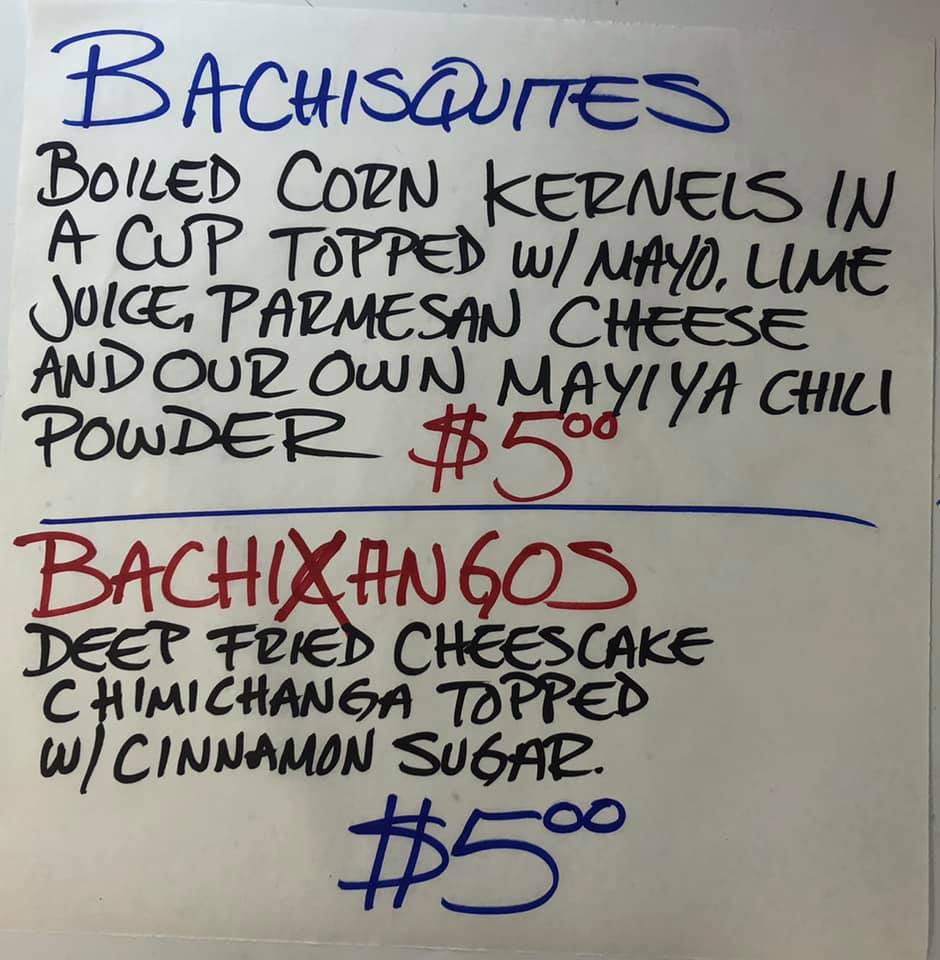 BACHISQUITES
BOILED CORN KERNELS IN
A CUP TOPPED W/ MAYO, LIME
JUICE, PARMESAN CHEESE
AND OUR OWN MAYIYA CHILI
POWDER $5.00
BACHIXANGOS
DEEP FRIED CHEESCAKE
CHIMICHANGA TOPPED
W/ CINNAMON SUGAR.
$5.00